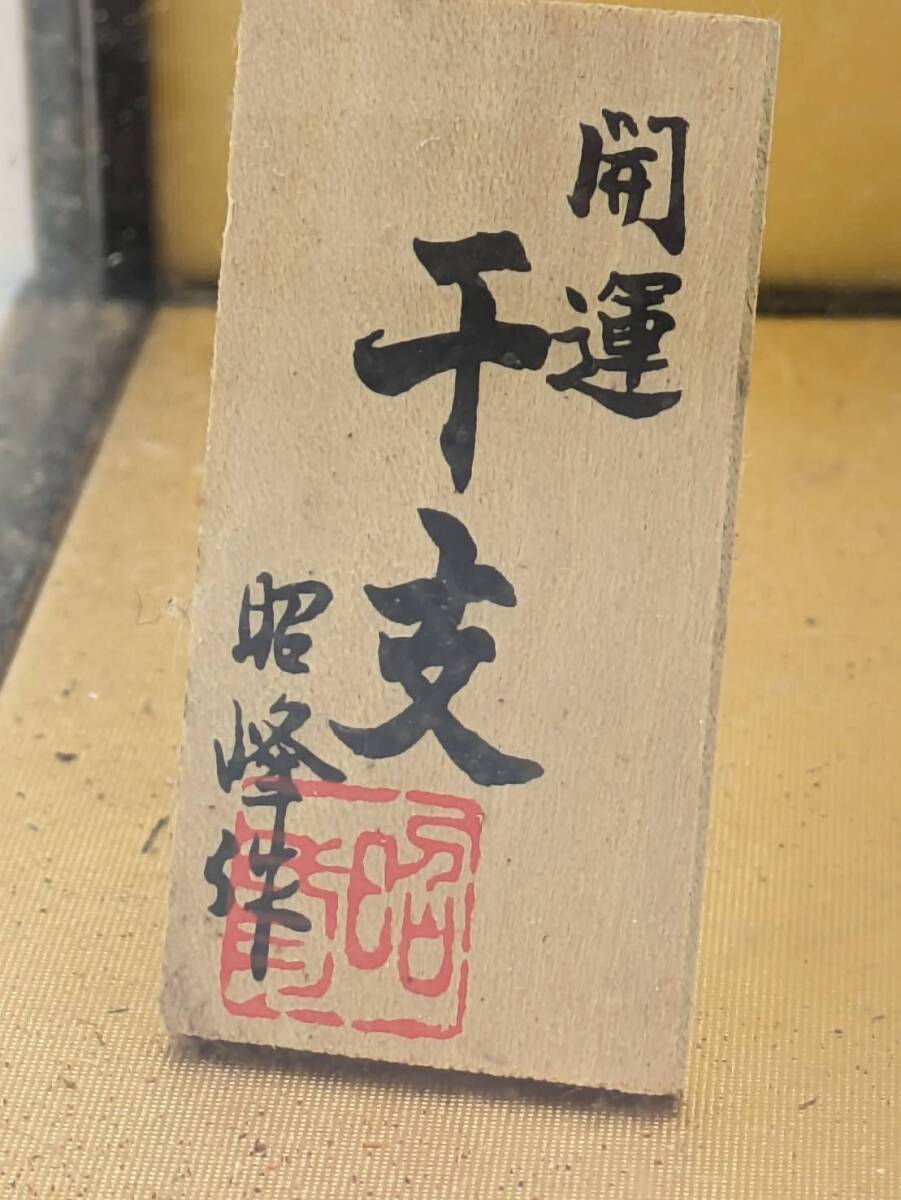 開運
干支
昭峰作
昭